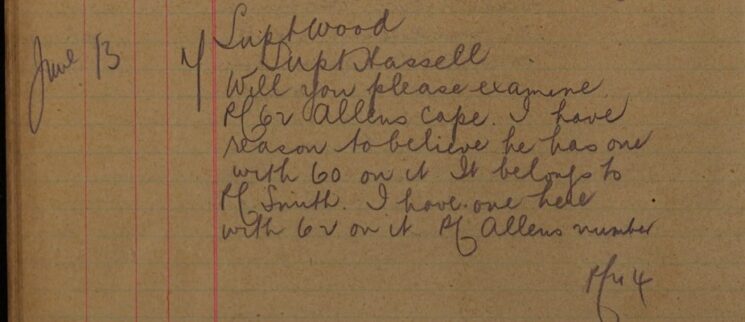 June 13
Supt Wood
Supt Hassell
Will you please examine
PC 62 Allens cape. I have
reason to believe he has one
with 60 on it It belongs to
PC Smith. I have one here
with 62 on it PC Allens number